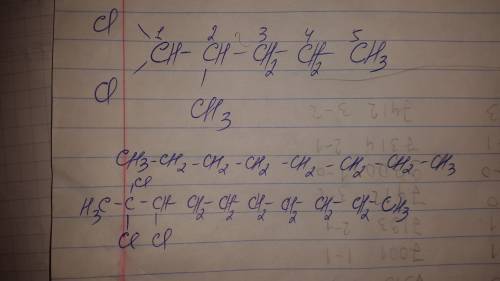 Cl
1 2 3 4 5
CH - CH - CH2 - CH2 - CH3
Cl
CH3
CH3-CH2-CH2-CH2-CH2-CH2-CH2-CH3
Cl
H3C-C-CH-CH2-CH2-CH2-CH2-CH2-CH2-CH3
Cl Cl